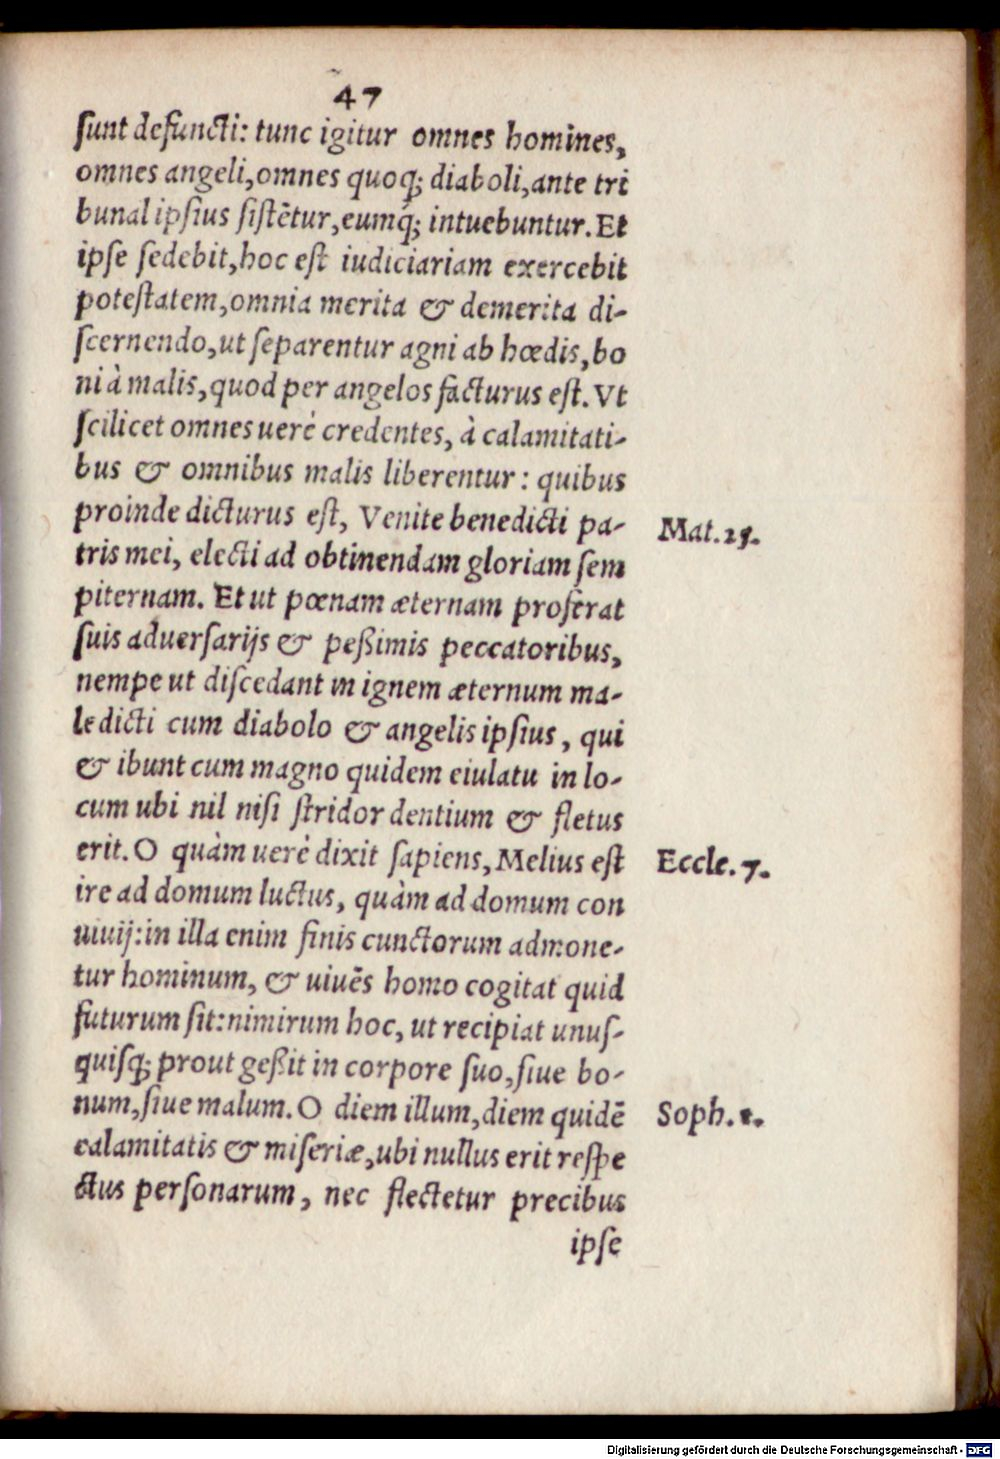 47
ſunt defuncti: tunc igitur omnes homines,
omnes angeli, omnes quoq; diaboli, ante tri
bunal ipſius ſiſtētur, eumq́; intuebuntur. Et
ipſe ſedebit, hoc eſt iudiciariam exercebit
poteſtatem, omnia merita & demerita di-
ſcernendo, ut ſeparentur agni ab hœdis, bo
ni à malis, quod per angelos facturus eſt. Vt
ſcilicet omnes uerè credentes, à calamitati-
bus & omnibus malis liberentur: quibus
proinde dicturus eſt, Venite benedicti pa-
Mat. 25.
tris mei, electi ad obtinendam gloriam ſem
piternam. Et ut pœnam æternam proferat
ſuis aduerſarijs & peßimis peccatoribus,
nempe ut diſcedant in ignem æternum ma-
ledicti cum diabolo & angelis ipſius, qui
& ibunt cum magno quidem eiulatu in lo-
cum ubi nil niſi ſtridor dentium & fletus
erit. O quàm uerè dixit ſapiens, Melius eſt
Eccle. 7.
ire ad domum luctus, quàm ad domum con
uiuij: in illa enim finis cunctorum admone-
tur hominum, & uiuēs homo cogitat quid
futurum ſit: nimirum hoc, ut recipiat unuſ-
quiſq; prout geßit in corpore ſuo, ſiue bo-
num, ſiue malum. O diem illum, diem quidē
Soph. 1.
calamitatis & miſeriæ, ubi nullus erit reſpe
ctus perſonarum, nec flectetur precibus
ipſe
Digitalisierung gefördert durch die Deutsche Forschungsgemeinschaft - DFG